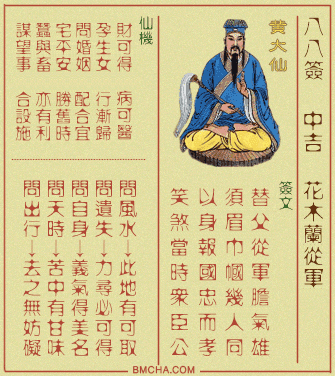 八八簽 中吉 花木蘭從軍
黄大仙
簽文
替父從軍膽氣雄
須眉巾幗幾人同
以身報國忠而孝
笑煞當時衆臣公
仙機
財可得 病可醫
孕生女 行漸歸
問婚姻 配合宜
宅平安 勝舊時
蠶與畜 亦有利
謀望事 合設施
問風水→此地有可取
問遺失→力尋必可得
問自身→義氣得美名
問天時→苦中有甘味
問出行→去之無妨礙
BMCHA.COM